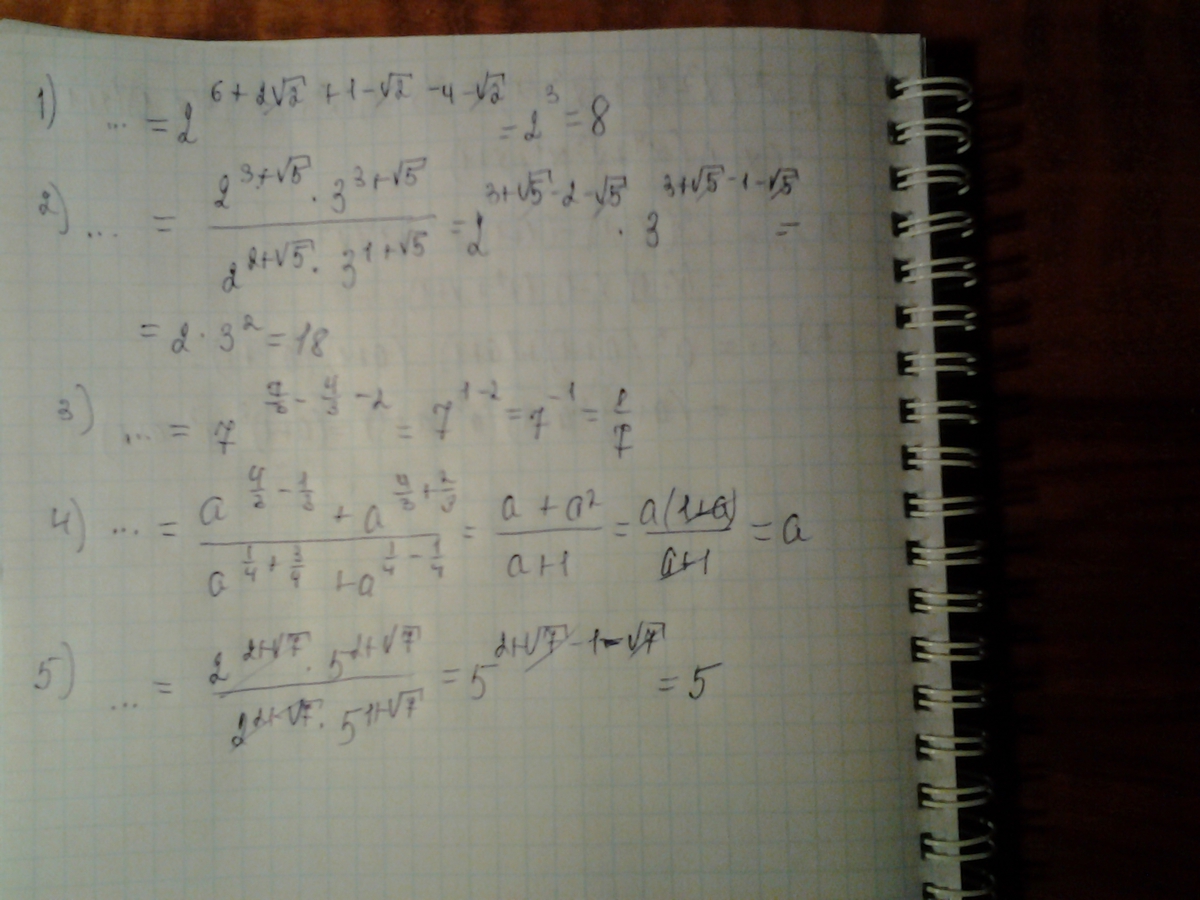 1) ... = 2^(6+2√2+1-√2-4-√2) = 2^3 = 8
2) ... = (2^(3+√5) · 3^(3+√5))/(2^(2+√5) · 3^(1+√5)) = 2^(3+√5-2-√5) · 3^(3+√5-1-√5) =
= 2 · 3^2 = 18
3) ... = 7 = 7^(1-2) = 7^(-1) = 1/7
4) ... = (a^(4/3-1/3) + a^(4/3+2/3))/(a^(1/4+3/4) + a^(1/4-1/4)) = (a + a^2)/(a+1) = a(1+a)/(a+1) = a
5) ... = (2^(2+√7) · 5^(2+√7))/(2^(2+√7) · 5^(1+√7)) = 5^(2+√7-1-√7) = 5